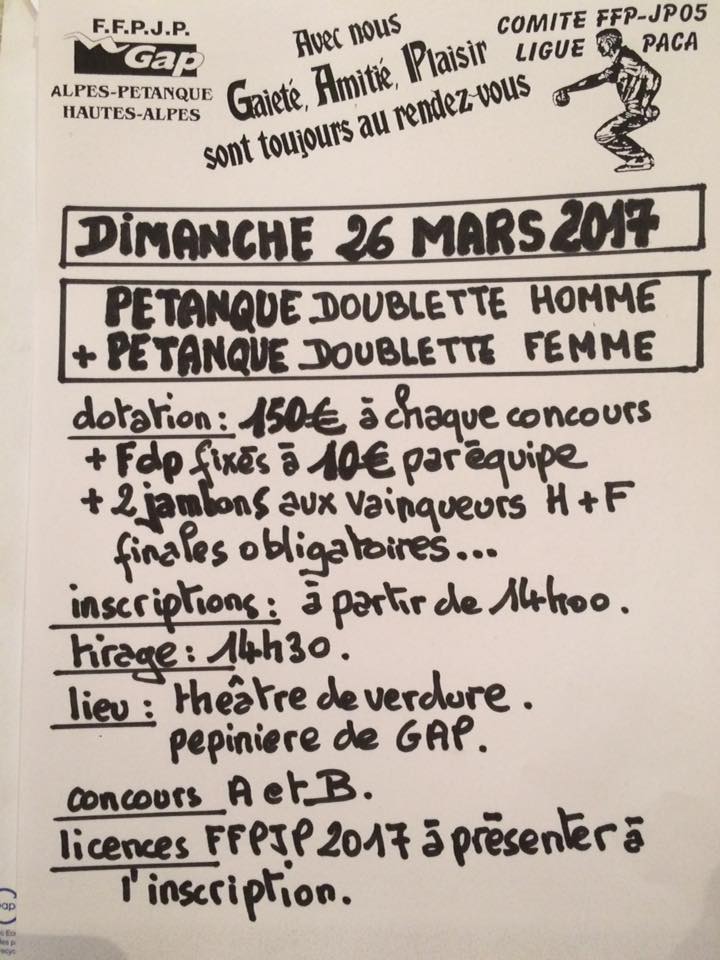 F.F.P.J.P.
Gap
ALPES-PETANQUE
HAUTES-ALPES
Avec nous
Gaieté, Amitié, Plaisir
sont toujours au rendez-vous
COMITE FFP-JP05
LIGUE PACA
DiMANCHE 26 MARS 2017
PETANQUE DOUBLETTE HOMME
+ PETANQUE DOUBLETTE FEMME
dotation: 150€ à chaque concours
+ Fdp fixés à 10€ par équipe
+ 2 jambons aux vainqueurs H + F
finales obligatoires...
inscriptions: à partir de 14h00.
tirage: 14h30.
lieu: théâtre de verdure.
pepiniere de GAP.
concours A et B.
licences FFPJP 2017 à présenter à
l'inscription.